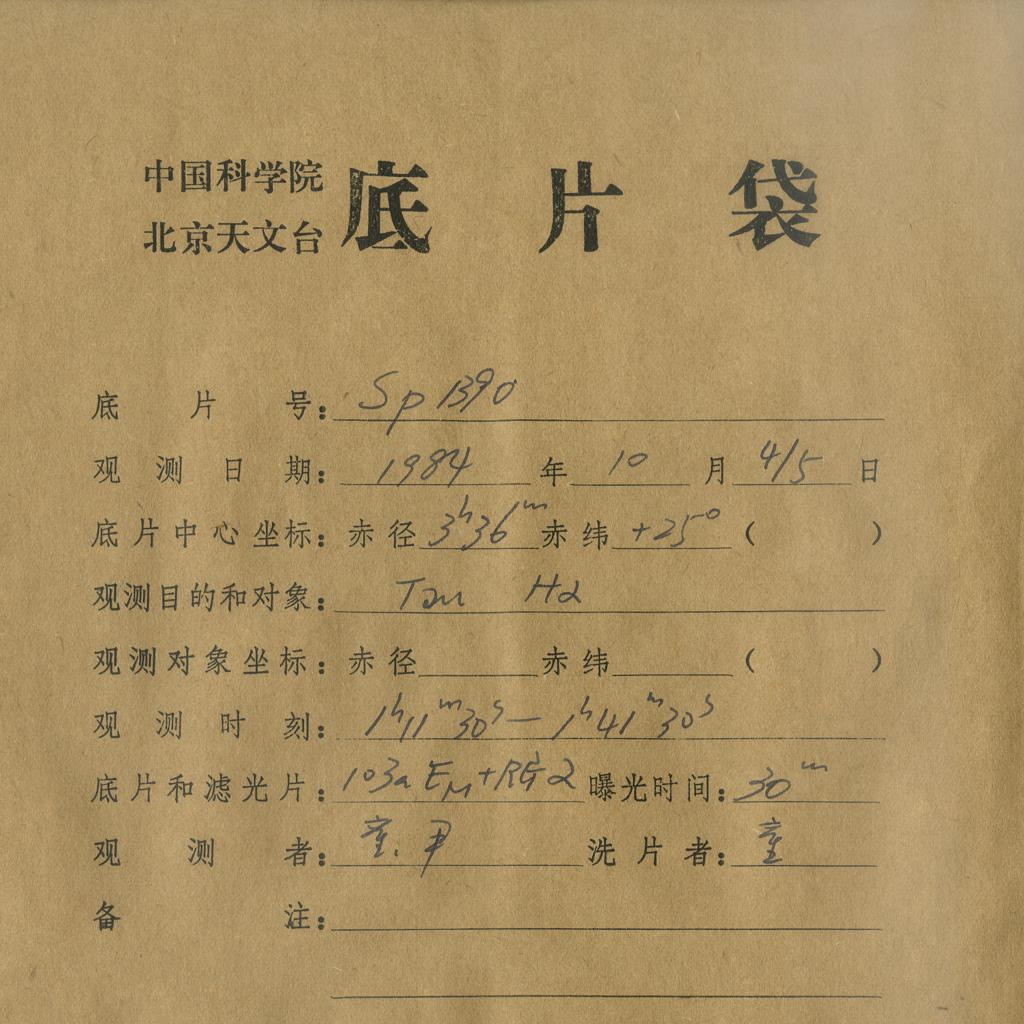 中国科学院
北京天文台
底片袋
底片号：Sp 1390
观测日期：1984年10月4/5日
底片中心坐标：赤径3h36m赤纬+25°（ ）
观测目的和对象：Tau Hα
观测对象坐标：赤径 赤纬 （ ）
观测时刻：1h11m30s—1h41m30s
底片和滤光片：103a EM+RG2 曝光时间：30m
观测者：童、尹 洗片者：童
备注：